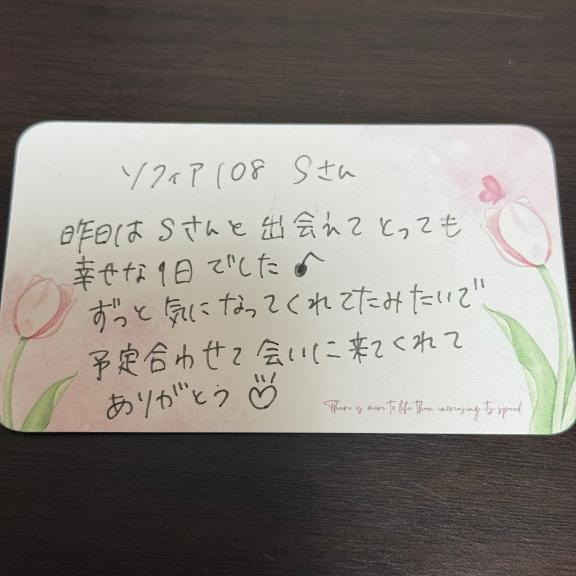 ソフィア108 Sさん
昨日はSさんと出会れてとっても
幸せな1日でした♪
ずっと気になってくれてたみたいで
予定合わせて会いに来てくれて
ありがとう♡
There is more to life than increasing its speed.